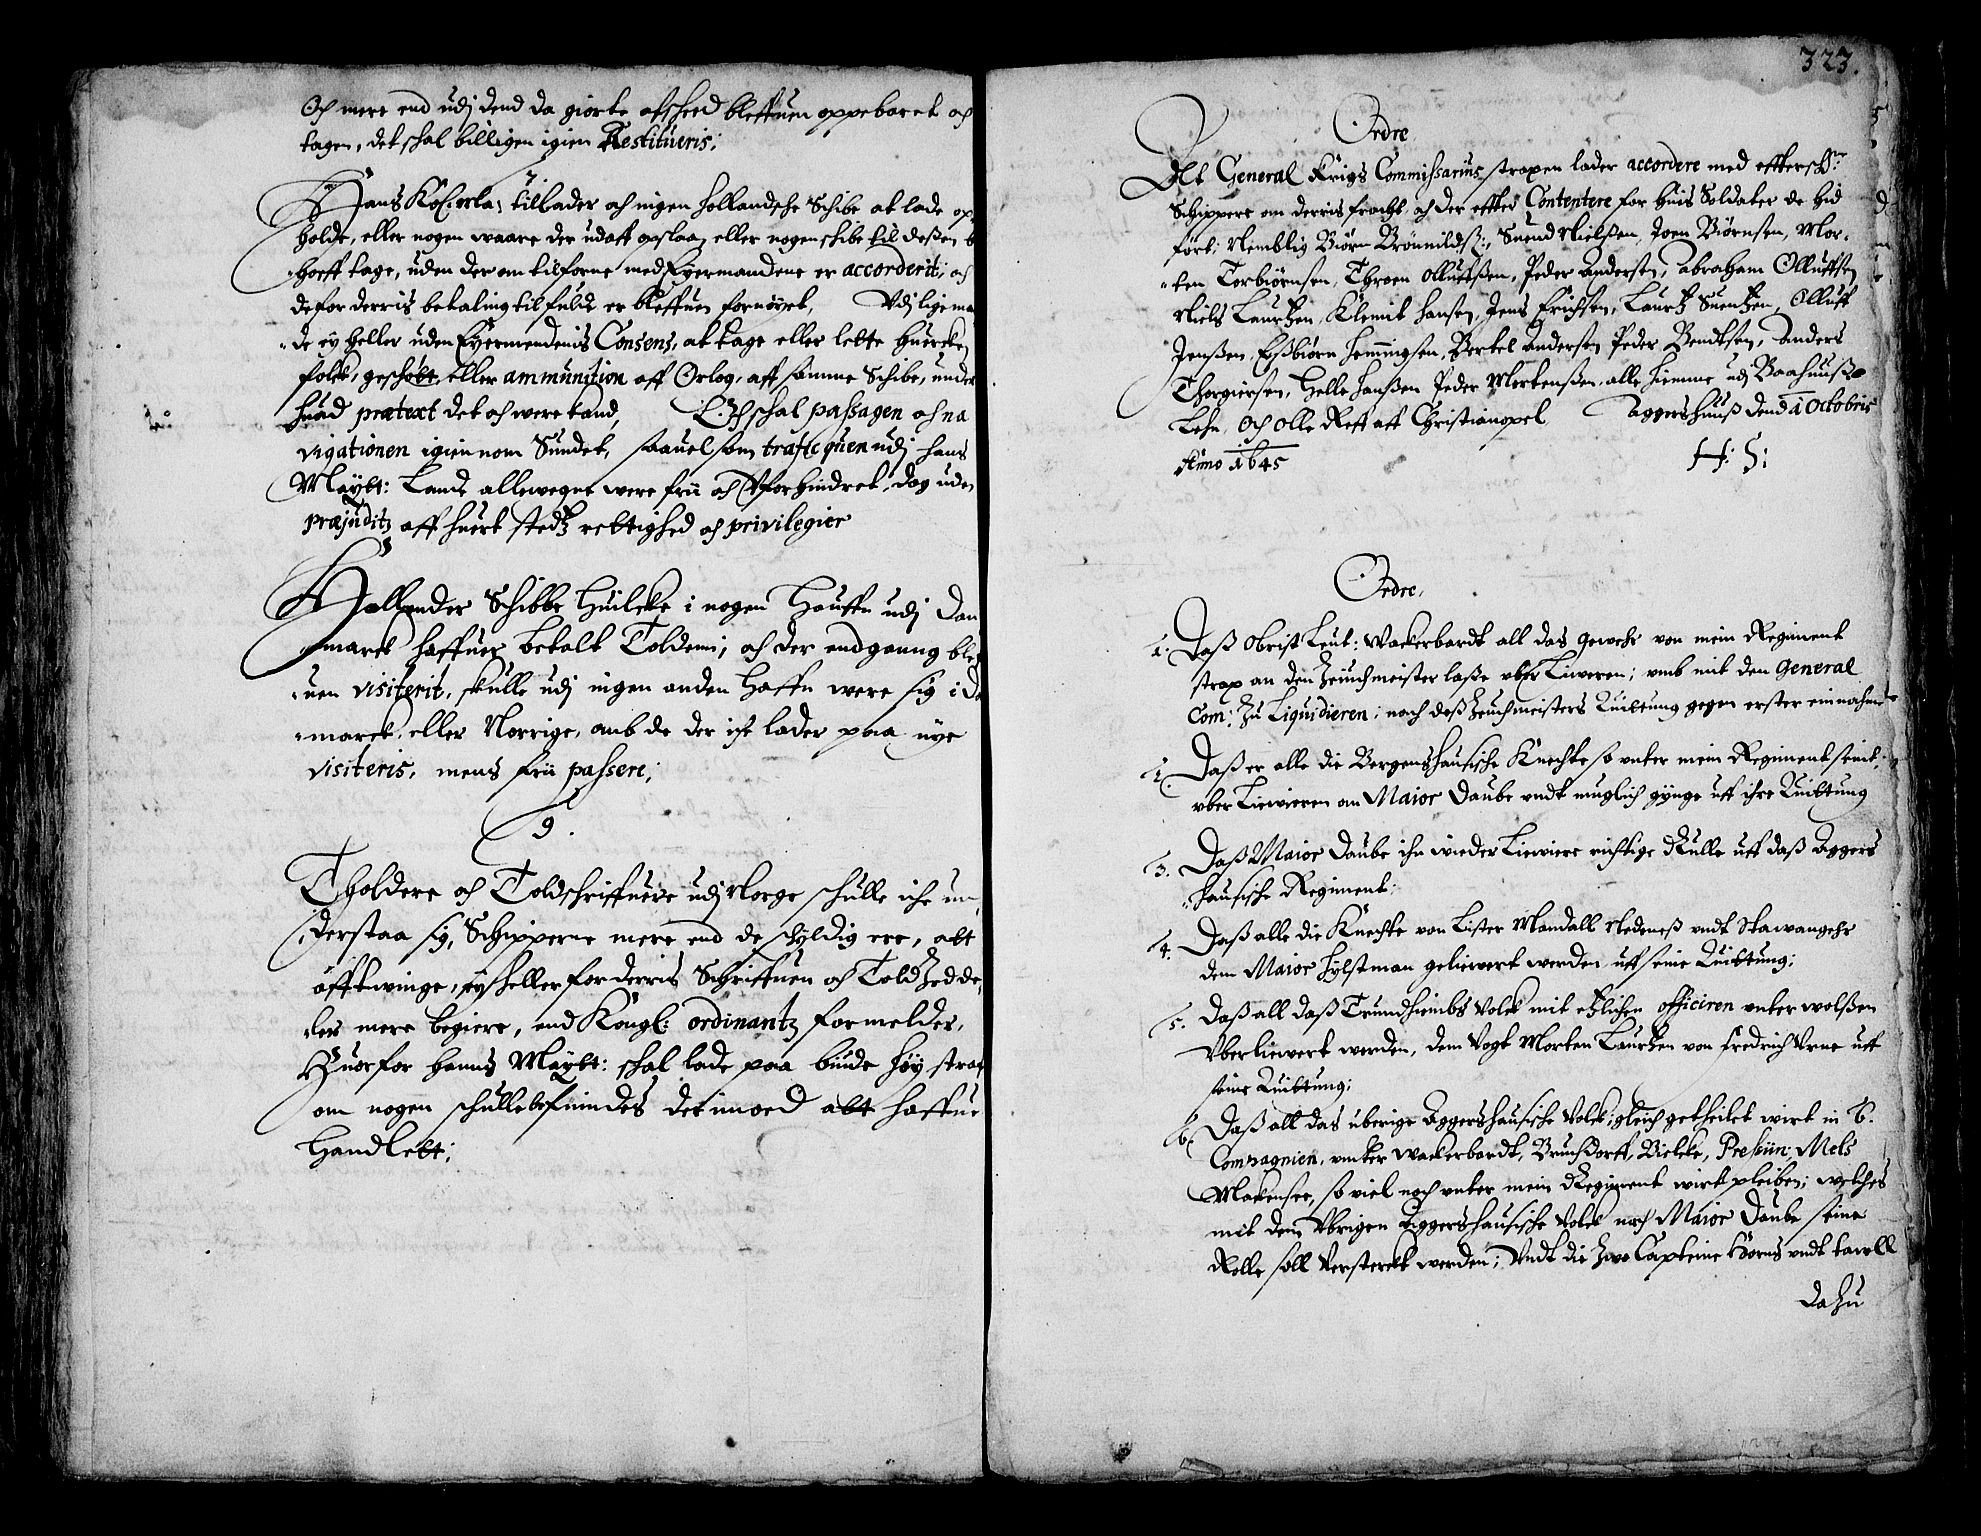 Och mere end udj dend da giorte affsheed bleffuen oppebaret och
tagen, det schal billigen igien Restitueris;
7.
Hans Kö: Maÿ: tillader och ingen hollandsche Schibe at lade op
holde, eller nogen waare der udaff opslaa, eller nogen schibe til deßen be
hoeff tage, uden der om tilforne med Eyermandene er accorderit; och
de for derris betaling til fulde er bleffuen fornöyet, Udj lige ma
de ey heller uden Eyermendenis Consens, at tage eller lette huercken
folck, geschøbt, eller ammunition aff Orlog, aff samme Schibe, under
huad prætext det och were kand, Och schal passagen och na
vigationen igiennom Sundet, saauelsom trafequen udj hans
Maytt: Lande allewegne were frii och Uforhindret, dog uden
præjuditz aff huert stedtz rettighed och privilegier
8
Hollender Schibbe huilcke i nogen Hauffn udj Dan
marck haffuer betalt Tolden; och der endgaang blef
uen visiterit, skulle udj ingen anden Haffn were sig i Da
marck, eller Norrige, anb de der ist lader paa nye
visiteris, mens frii passere;
9.
Tholdere och Toldschriffuere udj Norge schulle iche un
derstaa sig, Schipperne mere end de schyldig ere, att
afftwinge, ey heller for derris Schriffuen och Toldzedde
ler mere begiere, end Kongl: ordinantz formelder,
Huorfor hanns Maytt: schal lade paa biude høy straf
om nogen schulle befindes der imoed att haffue
Handlett;
323.
Ordre,
Att General Krigs Commissarius strapen lader accordere med effterschne
Schippere om derris fracht, och der effter Contentere for huis Soldater de hid
fört; Nemblig Biörn Brönnildß:, Suend Nielsen, Joen Biörnsen, Mor-
ten Torbiörnsen, Threen Olluffßen, Peder Andersen, Abraham Olluffsen
Niels Lauritzen, Klemit Hansen, Jens Erichsen, Lauritz Suentzen, Olluff
Jenßen, Eßbiörn Hemmingsen, Bertel Andersen, Peder Bendtsen, Anders
Thorgiersen, Helle Hanßen, Peder Mortenßen, alle hiemme udj Baahuuß
Lehn, Och Olle Reff aff Christianopel Aggershuuß dend 1 Octobris
Anno 1645 H: S:
Ordre,
1. Daß Obrist Leut: Wackerbardt all das gewehr von mein Regiment
strax an den Zeuchmeister laße uber Liueren; umb mit den General
Com: Zu Liquidieren; nach deß Zeuchmeisters Quittung gegen erster einnahme
2. Daß er alle die Bergenshausische Knechte so unter mein Regiment seint,
uber Liewieren an Maior Daube undt muglich gÿnge uff ihre Quittung
3. Daß Maior Daube ihn wieder Liewiere richtige Rulle uff daß Aggers
hausische Regiment;
4. Daß alle die Knechte von Lister Mandall Nedeneß undt Stawangehr
dem Maior Hylstman geliewert werden uff seine Quittung;
5. Daß all daß Trundheimbs Volck mit etzlichen officiren unter wolßen
Uberliewert werden, dem Vogt Morten Lauritzen von fredrich Urne uff
seine Quittung;
6. Daß all das uberige Aggershausische Volck; gleich getheilet wirt in 6.
Compagnien, unter Wackerbardt, Brunsdorff, Bielcke, Pressiin; Mels
Mackensee, so viel noch unter mein Regiment wirt pleiben; welches
mit dem Ubrigen Aggershausische Volck nach Maior Daube seine
Rolle soll versterckt werden; Undt die Zwo Capteine Horns undt tarell
daZu